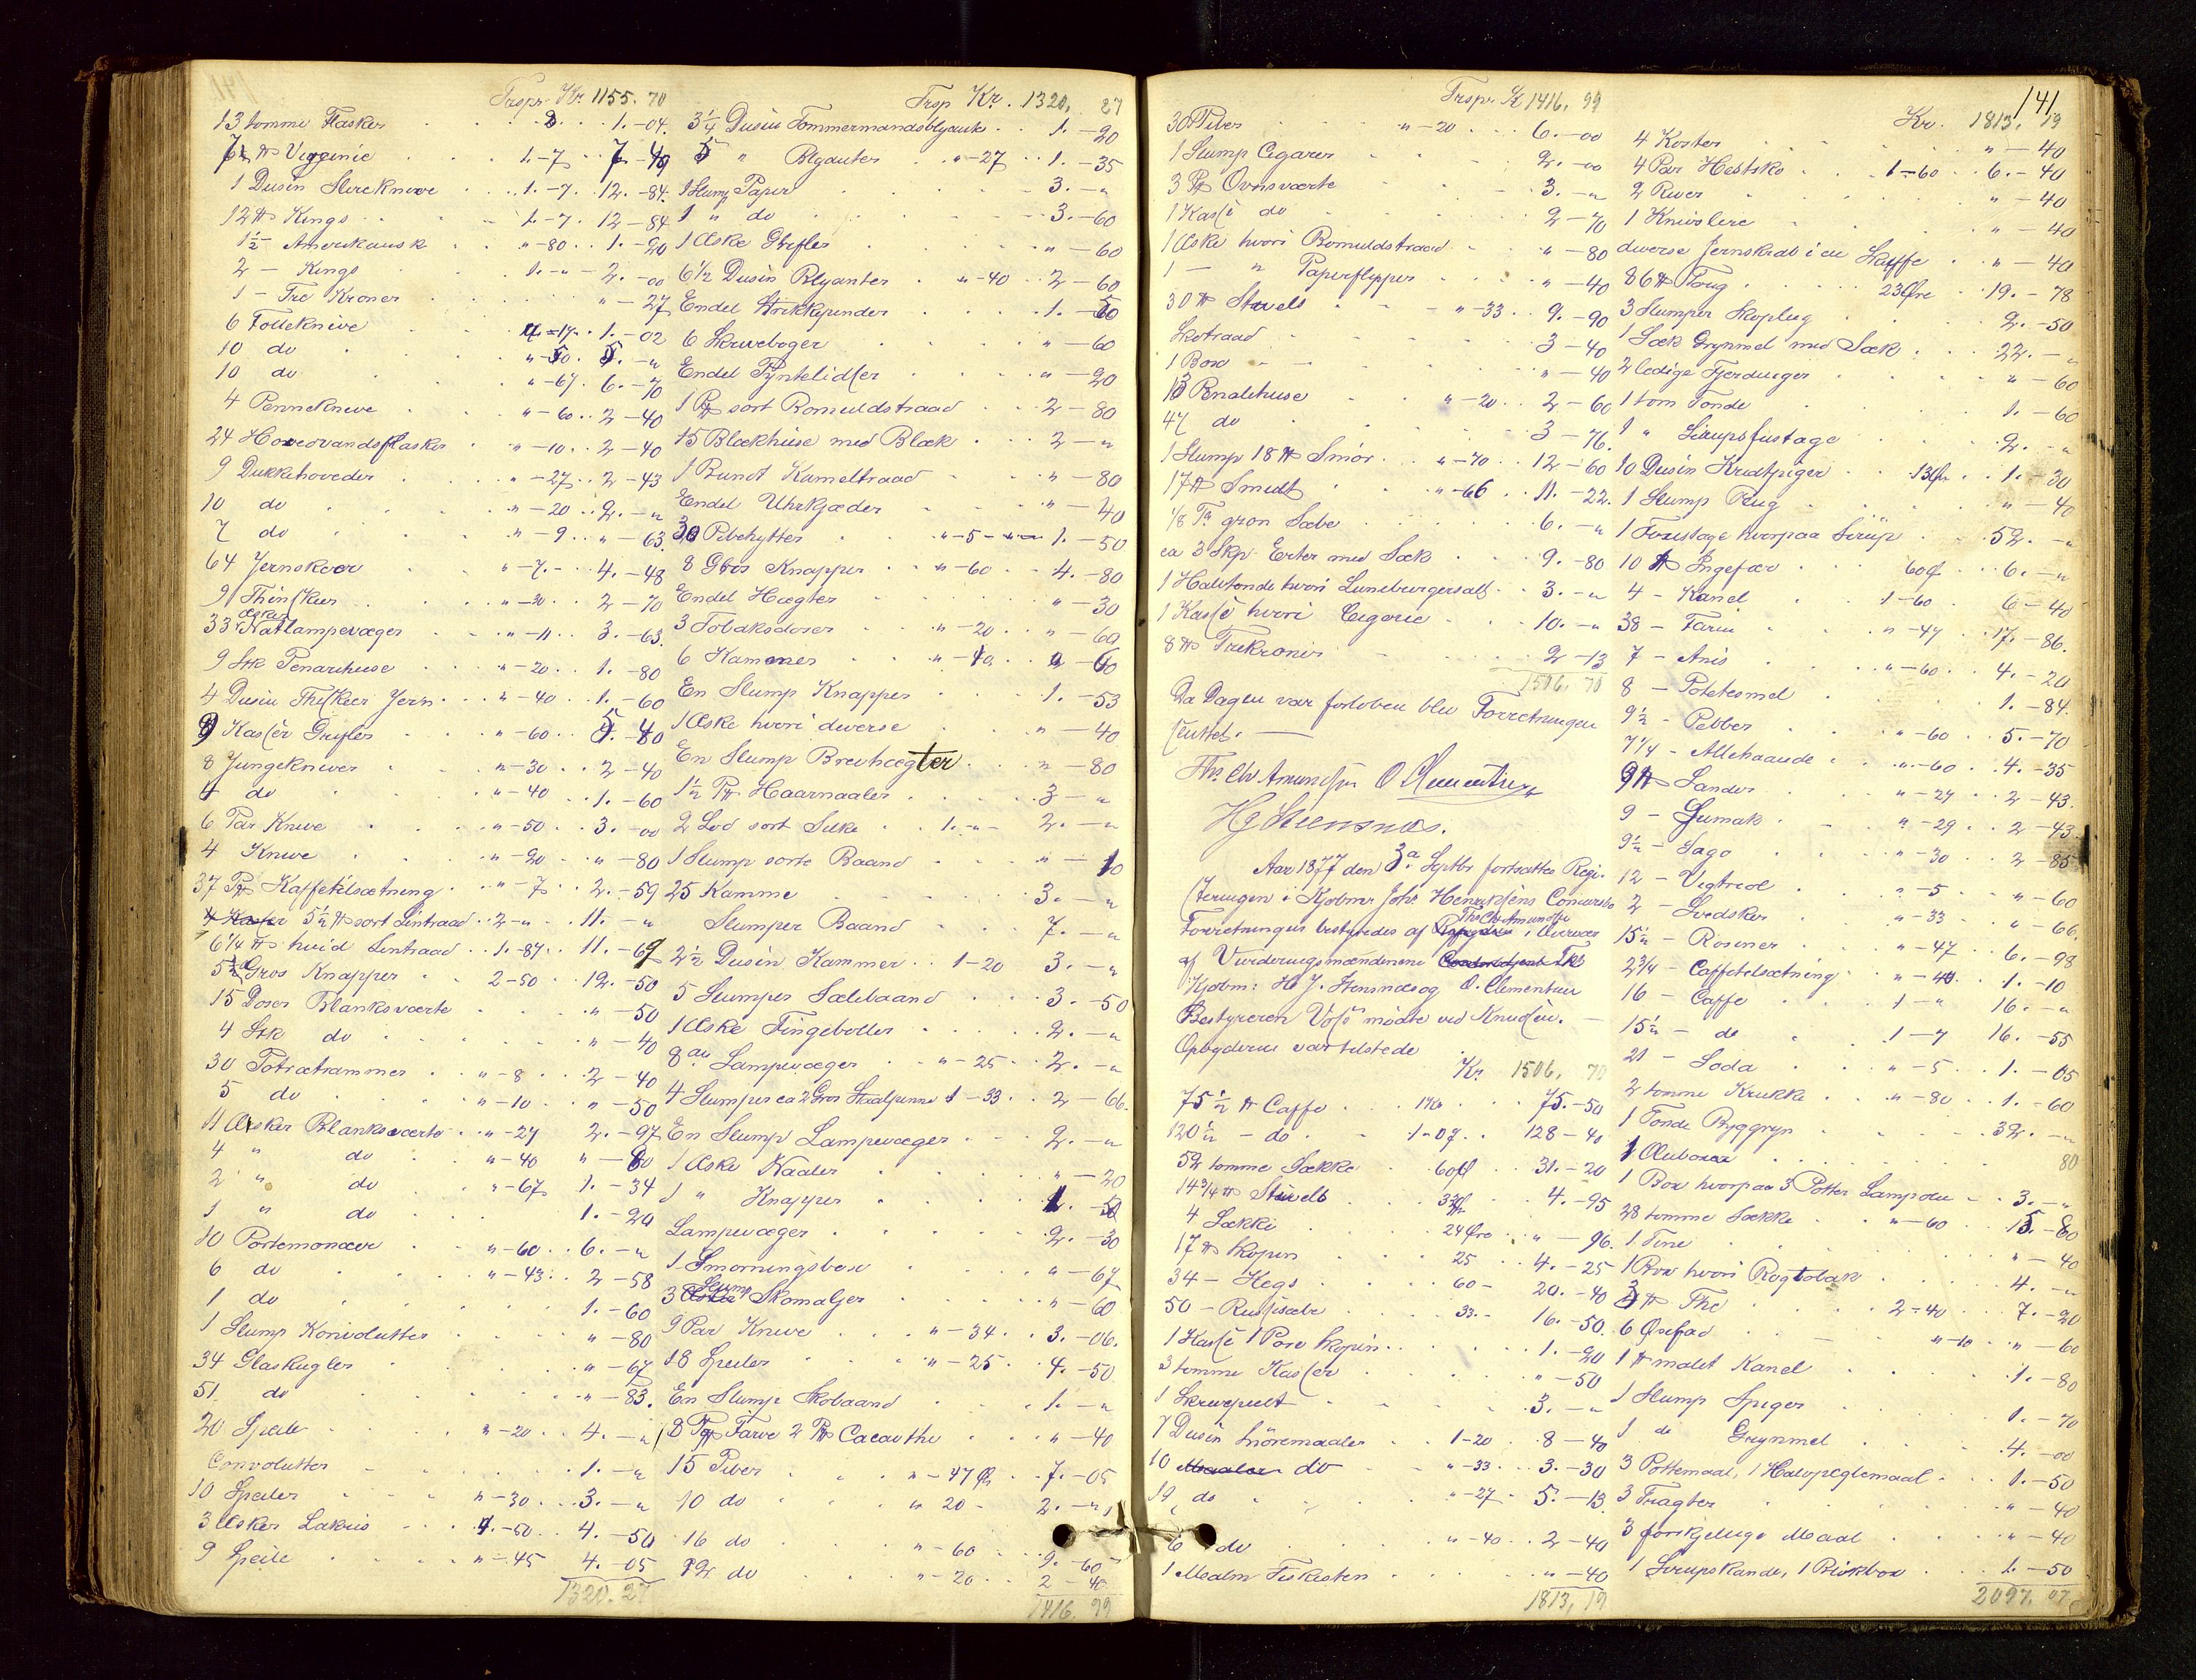 Trspr. Kr. 1155. 70
13 tomme Flasker 8 1.-04.
7 ℔ Virginie 1.-7 7-49
1 Dusin 1.-7. 12.-84.
12 ℔ Kings 1.-7. 12-84
1½ - Amerikansk "-80 1.-20
2 - Kings 1.-" 2.-00
1 - Tre Kroner "-27
6 Folleknive "-17 1.-02
10 do "-50. 5.-"
10 do "-67 6.-70
4 Penneknive "-60 2-40
24 Hovedvandsflasker "-10 2-40
9 Dukkehoveder "-27 2-43
10 do "-20 2.-"
7 do "-9 "-63.
64 Jernskeer "-7.- 4.-48
9 Theskeer "-30 2-70
33 Æsker Natlampevæger "-11 3.-63.
9 Stk Penalehuse "-20 1.-80
4 Dusin Theskeer Jern "-40 1.-60
9 Kasser Grifler "-60 5.-40
8 Jungekniver "-30 2-40
4 do "-40 1.-60
6 Par Knive "-50 3.-00
4 Knive "-20 "-80
37 Pk Kaffetilsætning "-7 2.-59
5½ ℔ sort Lintraad 2-" 11.-"
6¼ ℔ hvid Lintraad 1.-87 11.-69
5 Gros Knapper 2-50 12.-50
15 Doser Blanksværte "-50
4 Stk do "-40
30 Fotrætrammer "-8 2-40
5 do "-10 "-50
11 Æsker Blanksværte "-27 2.-97
4 " do "-40 "-80
2 " do "-67 1.-34
1 " do 1.-20
10 Portemonæer "-60 6.-"
6 do "-43 2-58
1 do 1.-60
1 Slump Konvolutter "-80
34 Glaskugler "-67
51 do "-83.
20 Speile "-20 4.-"
Convolutter 1.-"
10 Speiler "-30 3.-"
3 Æsker Lakris 1.-50 4.-50
9 Speile "-45 4.-05
1320.27
Trsp Kr. 1320. 27
3¼ Dusin Tømmermandsblyant 1.-20
5 " Blyanter "-27 1.-35
1 Slump Papir 3.-"
1 " do 3.-60
1 Æske Grifler "-60
6½ Dusin Blyanter "-40 2-60
Endel Strikkepinder 1.-50
6 Skrivebøger "-60
Endel "-20
1 Pk sort Bomuldstraad 2-80
15 Blækhuse med Blæk 2-"
1 Bundt Kameltraad "-80
Endel Uhrkjæder "-40
30 Pibehytter "-5 1.-50
8 Gros Knapper "-60 4.-80
Endel Hægter "-30
3 Tobaksdoser "-20 "-60
6 Kammer "-10 "-60
En Slump Knapper 1.-53
1 Æske hvori diverse "-40
En Slump Brevhægter "-80
1½ Pk Haarnaaler 3-"
2 Lod sort Silke 1.-" 2.-"
1 Slump sorte Baand "-10
25 Kamme 3.-"
Slumper Baand 7.-"
2½ Dusin Kammer 1-20 3.-"
5 Slumper Sælebaand 3.-50
1 Æske Fingebøller 2.-"
8 Lampevæger "-25 2.-"
4 Slumper ca 2 Gros Staalpenne 1-33 2-66.
En Slump Lampevæger 2.-"
1 Æske Naaler "-20
1 " Knapper
Lampevæger 2.-30
1 Smørningsbøsse "-67
3 Slump Skomaljer "-60
9 Par Knive "-34 3.-06.
18 Speiler "-25 4.-50
En Slump Skobaand 1.-"
8 Pk Farve 2 Pk Cacaothe "-40
15 Piber "-47 Ør 7.-05
10 do " 20- 2.-"
16 do "-60 9.-60
12 do "-20 2-40
1416.99
141
Trspr. Kr 1416. 99
30 Piber "-20 6.-00
1 Slump Cigarer 2.-00
3 Pk Ovnsværte 3.-"
1 Kasse do 2-70
1 Æske hvori Bomuldstraad "-80
1 - " Papirflipper "-40
30 ℔ Stivels "-33 9.-90
Skotraad 3-40
1 Box "-40
13 Penalehuse "-20 2-60
47 do 3-76.
1 Slump 18 ℔ Smør "-70 12-60
17 ℔ Smult "-66 11.-22.
1/8 Td grøn Sæbe 6.-"
ca 3 Skp Erter med Sæk 9.-80
1 Halvtønde hvori Luneburgersalt 3.-"
1 Kasse hvori Cigorie 10.-"
8 ℔ Trekroner 2-13
1506. 70
Da Dagen var forløben blev Forretningen
sluttet.
Ths. Chr Amundsen O Clementsen
Hg Stensnæs.
Aar 1877 den 3die Septbr fortsattes Regi-
streringen i Kjøbmd Johs Henriksens Concursbo
Forretningen bestyredes af Ths Chr Amundsen i Overvær
af Vurderingsmændene
Kjøbm: H. J. Stensnæs og O. Clementsen
Bestyreren Voss mødte ved Knudsen.
Opbyderen var tilstede
Kr. 1506. 70
75½ ℔ Caffe 1 Kr 75.-50
120½ - do 1-07 128-40
52 tomme Sække 60 Ø 31.-20
14¾ ℔ Stivels 33 Ø 4.-95
4 Sække 24 Øre "-96.
17 ℔ 25 4.-25
34 - Kegs 60- 20.-40
50 - Rusisæbe 33.- 16.-50.
1 Kasse 1 Pose 1.-20
3 tomme Kasser "-50
1 Skrivepult 3.-"
7 Dusin Snøremaaler 1-20 8-40
10 do "-33 3.-30
19 do "-27 5.-13
6 do "-40 2-40
1 Malm Fiskesten "-40
1813,19
Kr. 1813. 19
4 Koster "-40
4 Par Hestsko 1-60 6.-40
2 River "-40
1 "-40
diverse Jernskrab i en Skuffe "-40
86 ℔ Toug 23 Øre 19.-78
3 Slumper Skoplug 2.-50
1 Sæk Grynmel med Sæk 22.-"
2 ledige Fjerdinger "-60
1 tom Tønde 1.-60
1 " Sirupsfustage 2.-"
10 Dusin Kridtpiger 13 Ør 1.-30
1 Slump Rug "-40
1 Fustage hvorpaa Sirup 52.-"
10 ℔ Ingefær 60 Ø 6.-"
4 - Kanel 1-60 6-40
38 - Farin "-47 17.-86.
7 - Anis "-60 4.-20
8 - Potetesmel 1.-84.
9½ - Pebber "-60 5.-70
7¼ - Allehaande "-60 4.-35
9 ℔ Sander "-27 2-43.
9 - Sumak "-29 2-43
9½ - Sago "-30 2-85
12 - Vigtriol "-5 "-60
2 - Svedsker "-33 "-66.
15½ - Rosiner "-47 6.-98
2¾ - Caffetilsætning "-40. 1.-10
16 - Caffe 1-" 16.-"
15½ - do 1-7 16.-55
21 - Soda "-5 1.-05
2 tomme Krukke "-80 1.-60
1 Tønde Byggryn 32.-"
1 80
1 Box hvorpaa 3 Potter Lampolie 3.-"
28 tomme Sække "-60 15.-80
1 Tine "-40
1 Box hvori Røgtobak 4.-"
3 ℔ The 2-40 7.-20
6 Øsefad "-10 "-60
1 ℔ malet Kanel 1.-80
1 Slump Spiger 1.-70
1 do Grynmel 4.-00
3 Pottemaal, 1 Halvpeglemaal 1.-50
3 Tragter "-40
3 forskjellige Maal "-40
1 Sirupskande, 1 Blikbox 1.-50
2097. 07